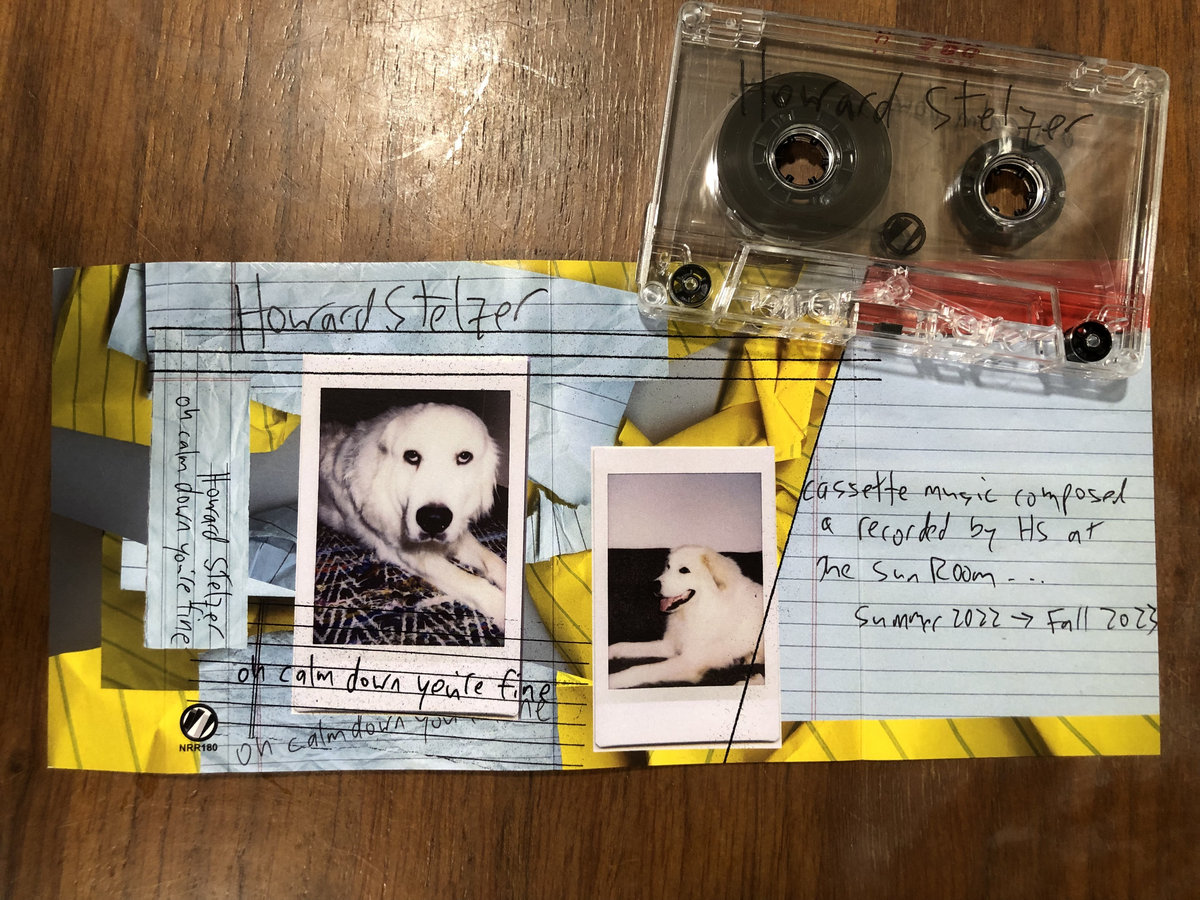 Howard Stelzer
Howard Stelzer
Howard Stelzer
oh calm down you're fine
oh calm down you're fine
oh calm down you're fine
NRR180
cassette music composed
& recorded by HS at
The Sun Room ...
Summer 2022 → Fall 2023